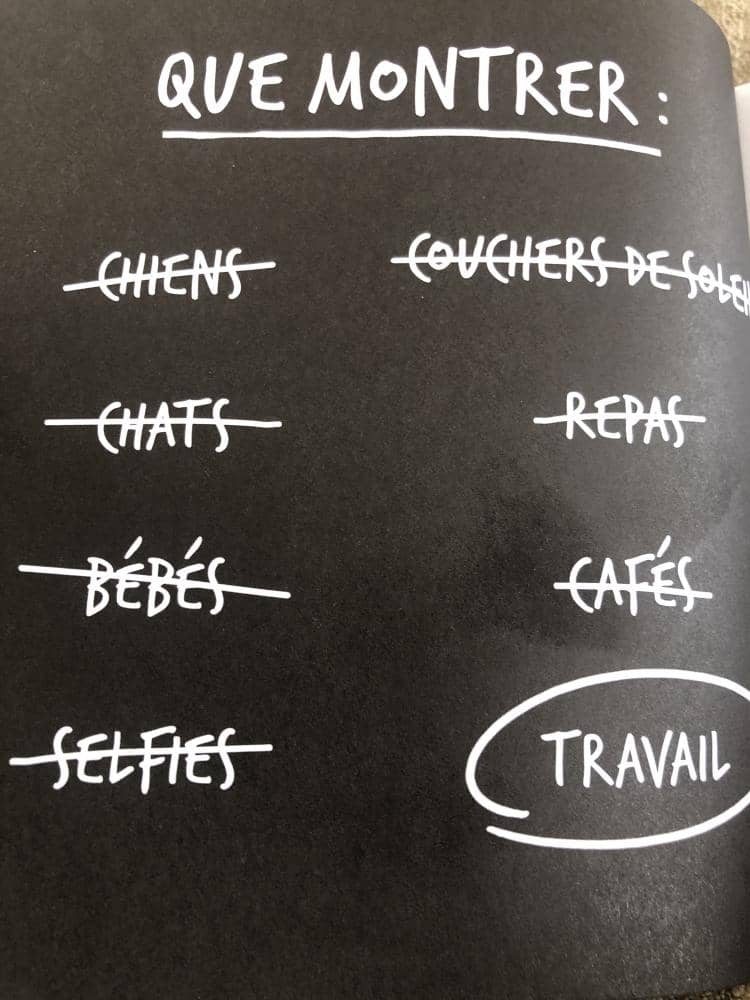 QUE MONTRER :
CHIENS
COUCHERS DE
CHATS
REPAS
BÉBÉS
CAFÉS
SELFIES
TRAVAIL